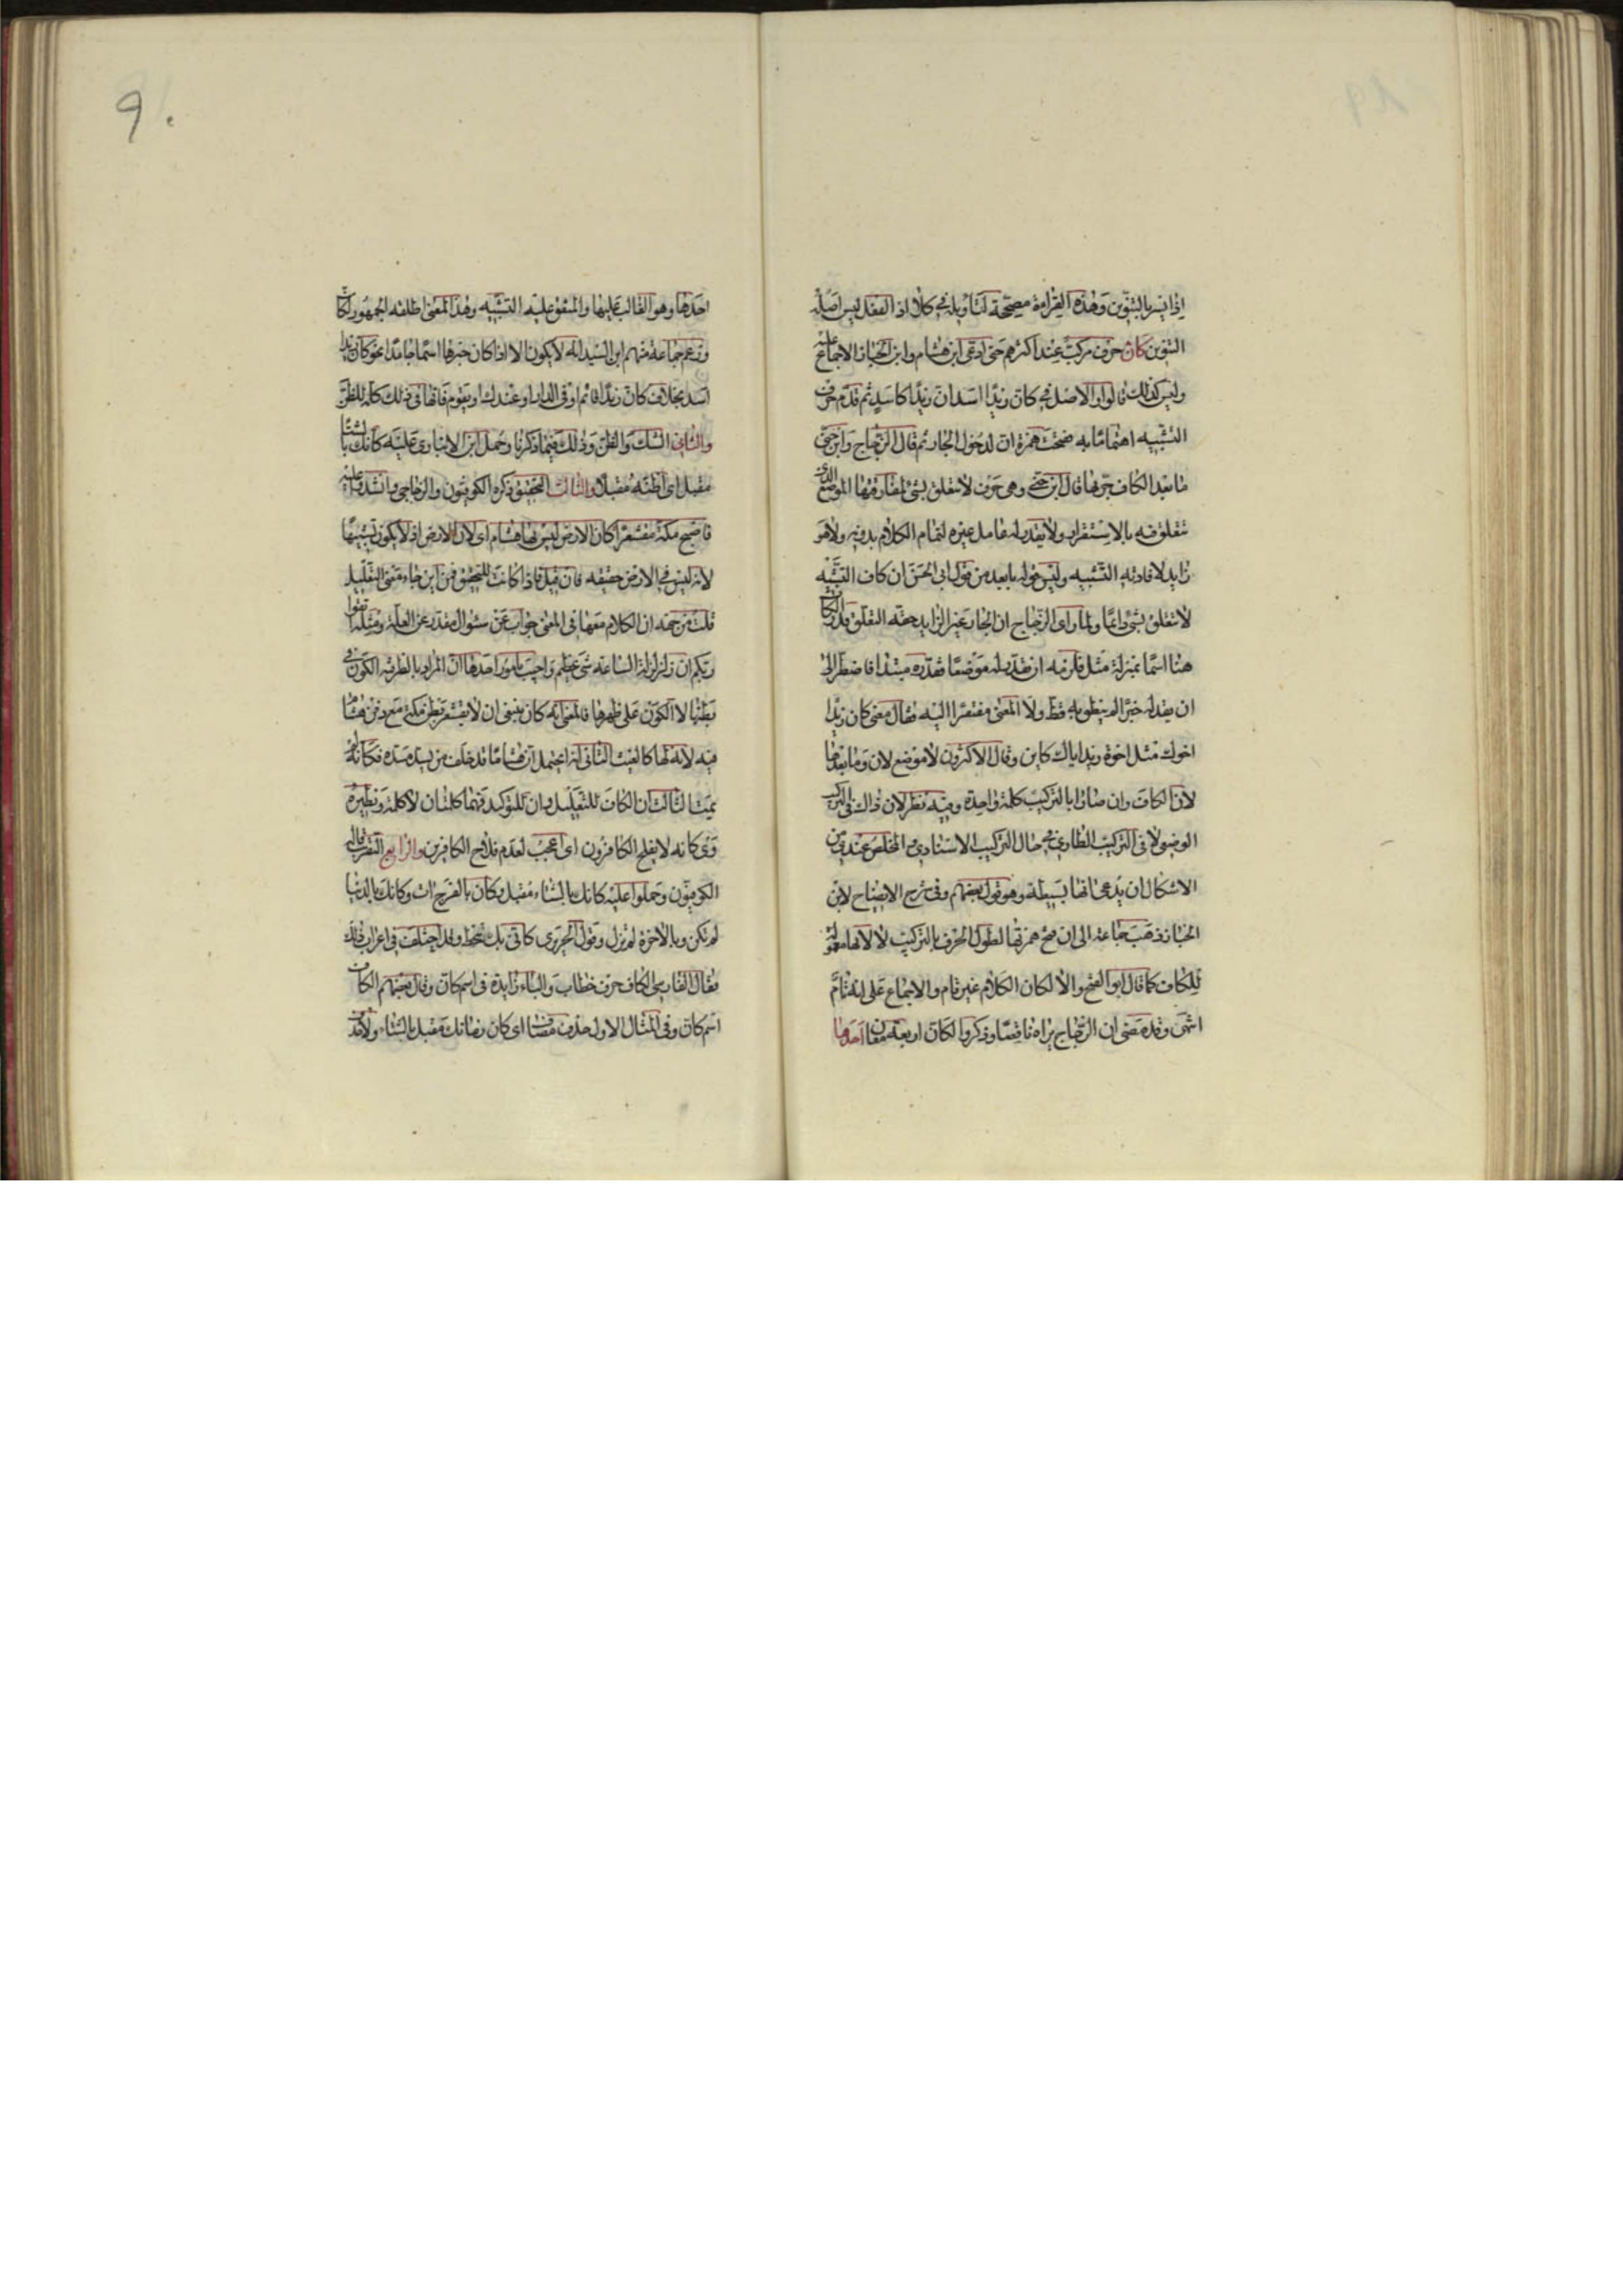 اذا يسر بالتنوين وهذه القراءة مصححة لتأويله في كلا اذ الفعل ليس اصله
التنوين كان حرف مركب عند اكثرهم حتى ادعى ابن هشام وابن الخباز الاجماع عليه
وليس كذلك قالوا والاصل في كان زيدا اسد ان زيدا كاسد ثم قدم حرف
التشبيه اهتماما به ففتحت همزة ان لدخول الجار ثم قال الزجاج وابن جني
ما بعد الكاف جر بها قال ابن جني وهي حرف لا تتعلق بشئ لمفارقتها الموضع الذي
تتعلق فيه بالاستقرار ولا يقدر له عامل غيره لتمام الكلام بدونه ولا هو
زايد لافادته التشبيه وليس قوله بابعد من قول ابي الحسن ان كاف التشبيه
لا تتعلق بشئ دائما ولما راى الزجاج ان الجار غير الزايد حقه التعلق قدر الكاف
هنا اسما بمنزلة مثل فلزمه ان يقدر له موضعا فقدره مبتدا فاضطر الى
ان يقدر له خبرا لم ينطق به قط ولا المعنى مفتقرا اليه فقال معنى كان زيدا
اخوك مثل اخوة زيد اياك كاين وقال الاكثرون لا موضع لان وما بعدها
لان الكاف وان صارا بالتركيب كلمة واحدة وفيه نظر لان ذاك في التركيب
الوضعي لا في التركيب الطاري في حال التركيب الاسنادي والمخلص عندي من
الاشكال ان يدعى انها بسيطة وهو قول بعضهم وفي شرح الايضاح لابن
الخباز ذهب جماعة الى ان فتح همزتها لطول الحرف بالتركيب لا لانها معمولة
للكاف كما قال ابو الفتح والا لكان الكلام غير تام والاجماع على انه تام
انتهى وقد مضى ان الزجاج يراه ناقصا وذكروا لكان اربعة معان احدها
٩٠
احدها وهو الغالب عليها والمتفق عليه التشبيه وهذا المعنى اطلقه الجمهور لكان
وزعم جماعة منهم ابن السيد انه لا يكون الا اذا كان خبرها اسما جامدا نحو كان زيدا
اسد بخلاف كان زيدا قائم او في الدار او عندك او يقوم فانها في ذلك كله للظن
والثاني الشك والظن وذلك فيما ذكرنا وحمل ابن الانباري عليه كانك بالشتا
مقبل اى اظنه مقبلا والثالث التحقيق ذكره الكوفيون والزجاجي وانشدوا عليه
فاصبح بطن مكة مقشعرا كان الارض ليس بها هشام اى لان الارض اذ لا يكون تشبيها
لانه ليس في الارض حقيقه فان قيل فاذا كانت للتحقيق فمن اين جاء معنى التعليل
قلت من جهة ان الكلام معها في المعنى جواب عن سئوال مقدر عن العلة ومثله اتقوا
ربكم ان زلزلة الساعة شئ عظيم واجيب بامور احدها ان المراد بالظرفيه الكون في
بطنها لا الكون على ظهرها فالمعنى انه كان ينبغي ان لا يقشعر بطن مكة مع دفن هشام
فيه لانه لها كالغيث الثاني انه يحتمل ان هشاما قد خلف من يسد مسده فكانه لم
يمت الثالث ان الكاف للتعليل وان للتوكيد فهما كلمتان لا كلمة ونظيره
وى كانه لا يفلح الكافرون اى اعجب لعدم فلاح الكافرين والرابع التقريب قاله
الكوفيون وحملوا عليه كانك بالشتاء مقبل وكان بالفرج ات وكانك بالدنيا
لم تكن وبالاخرة لم تزل وقول الحريرى كانى بك تنحط وقد اختلف في اعراب ذلك
فقال الفارسي الكاف حرف خطاب والباء زايدة في اسم كان وقال بعضهم الكاف
اسم كان وفي المثال الاول حذف مضاف اى كان زمانك مقبل بالشتاء ولا حذف